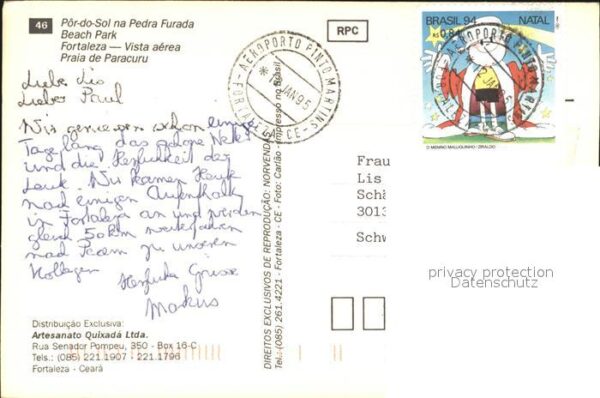 46
Pôr-do-Sol na Pedra Furada
Beach Park
Fortaleza — Vista aérea
Praia de Paracuru
RPC
BRASIL 94 NATAL
R$ 0,84
AEROPORTO PINTO MARTINS
JAN 95
FORTALEZA - CE
O MENINO MALUQUINHO / ZIRALDO
Liebe Lis
Lieber Paul
Wir geniessen schon einige
Tage lang das schöne
und die Herzlichkeit der
Leute. Wir kamen Heute
nach einigen Aufenthalt
in Fortaleza an und werden
gleich 50 km weiterfahren
nach Pecem zu unseren
Kollegen
Herzliche Grüsse
Markus
Frau
Lis
Schä
3013
Schw
privacy protection
Datenschutz
DIREITOS EXCLUSIVOS DE REPRODUÇÃO: NORVENDA
Tel.: (085) 261.4221 - Fortaleza - CE - Foto: Carlão - Impresso no Brasil
Distribuição Exclusiva:
Artesanato Quixadá Ltda.
Rua Senador Pompeu, 350 - Box 16-C
Tels.: (085) 221.1907 - 221.1796
Fortaleza - Ceará